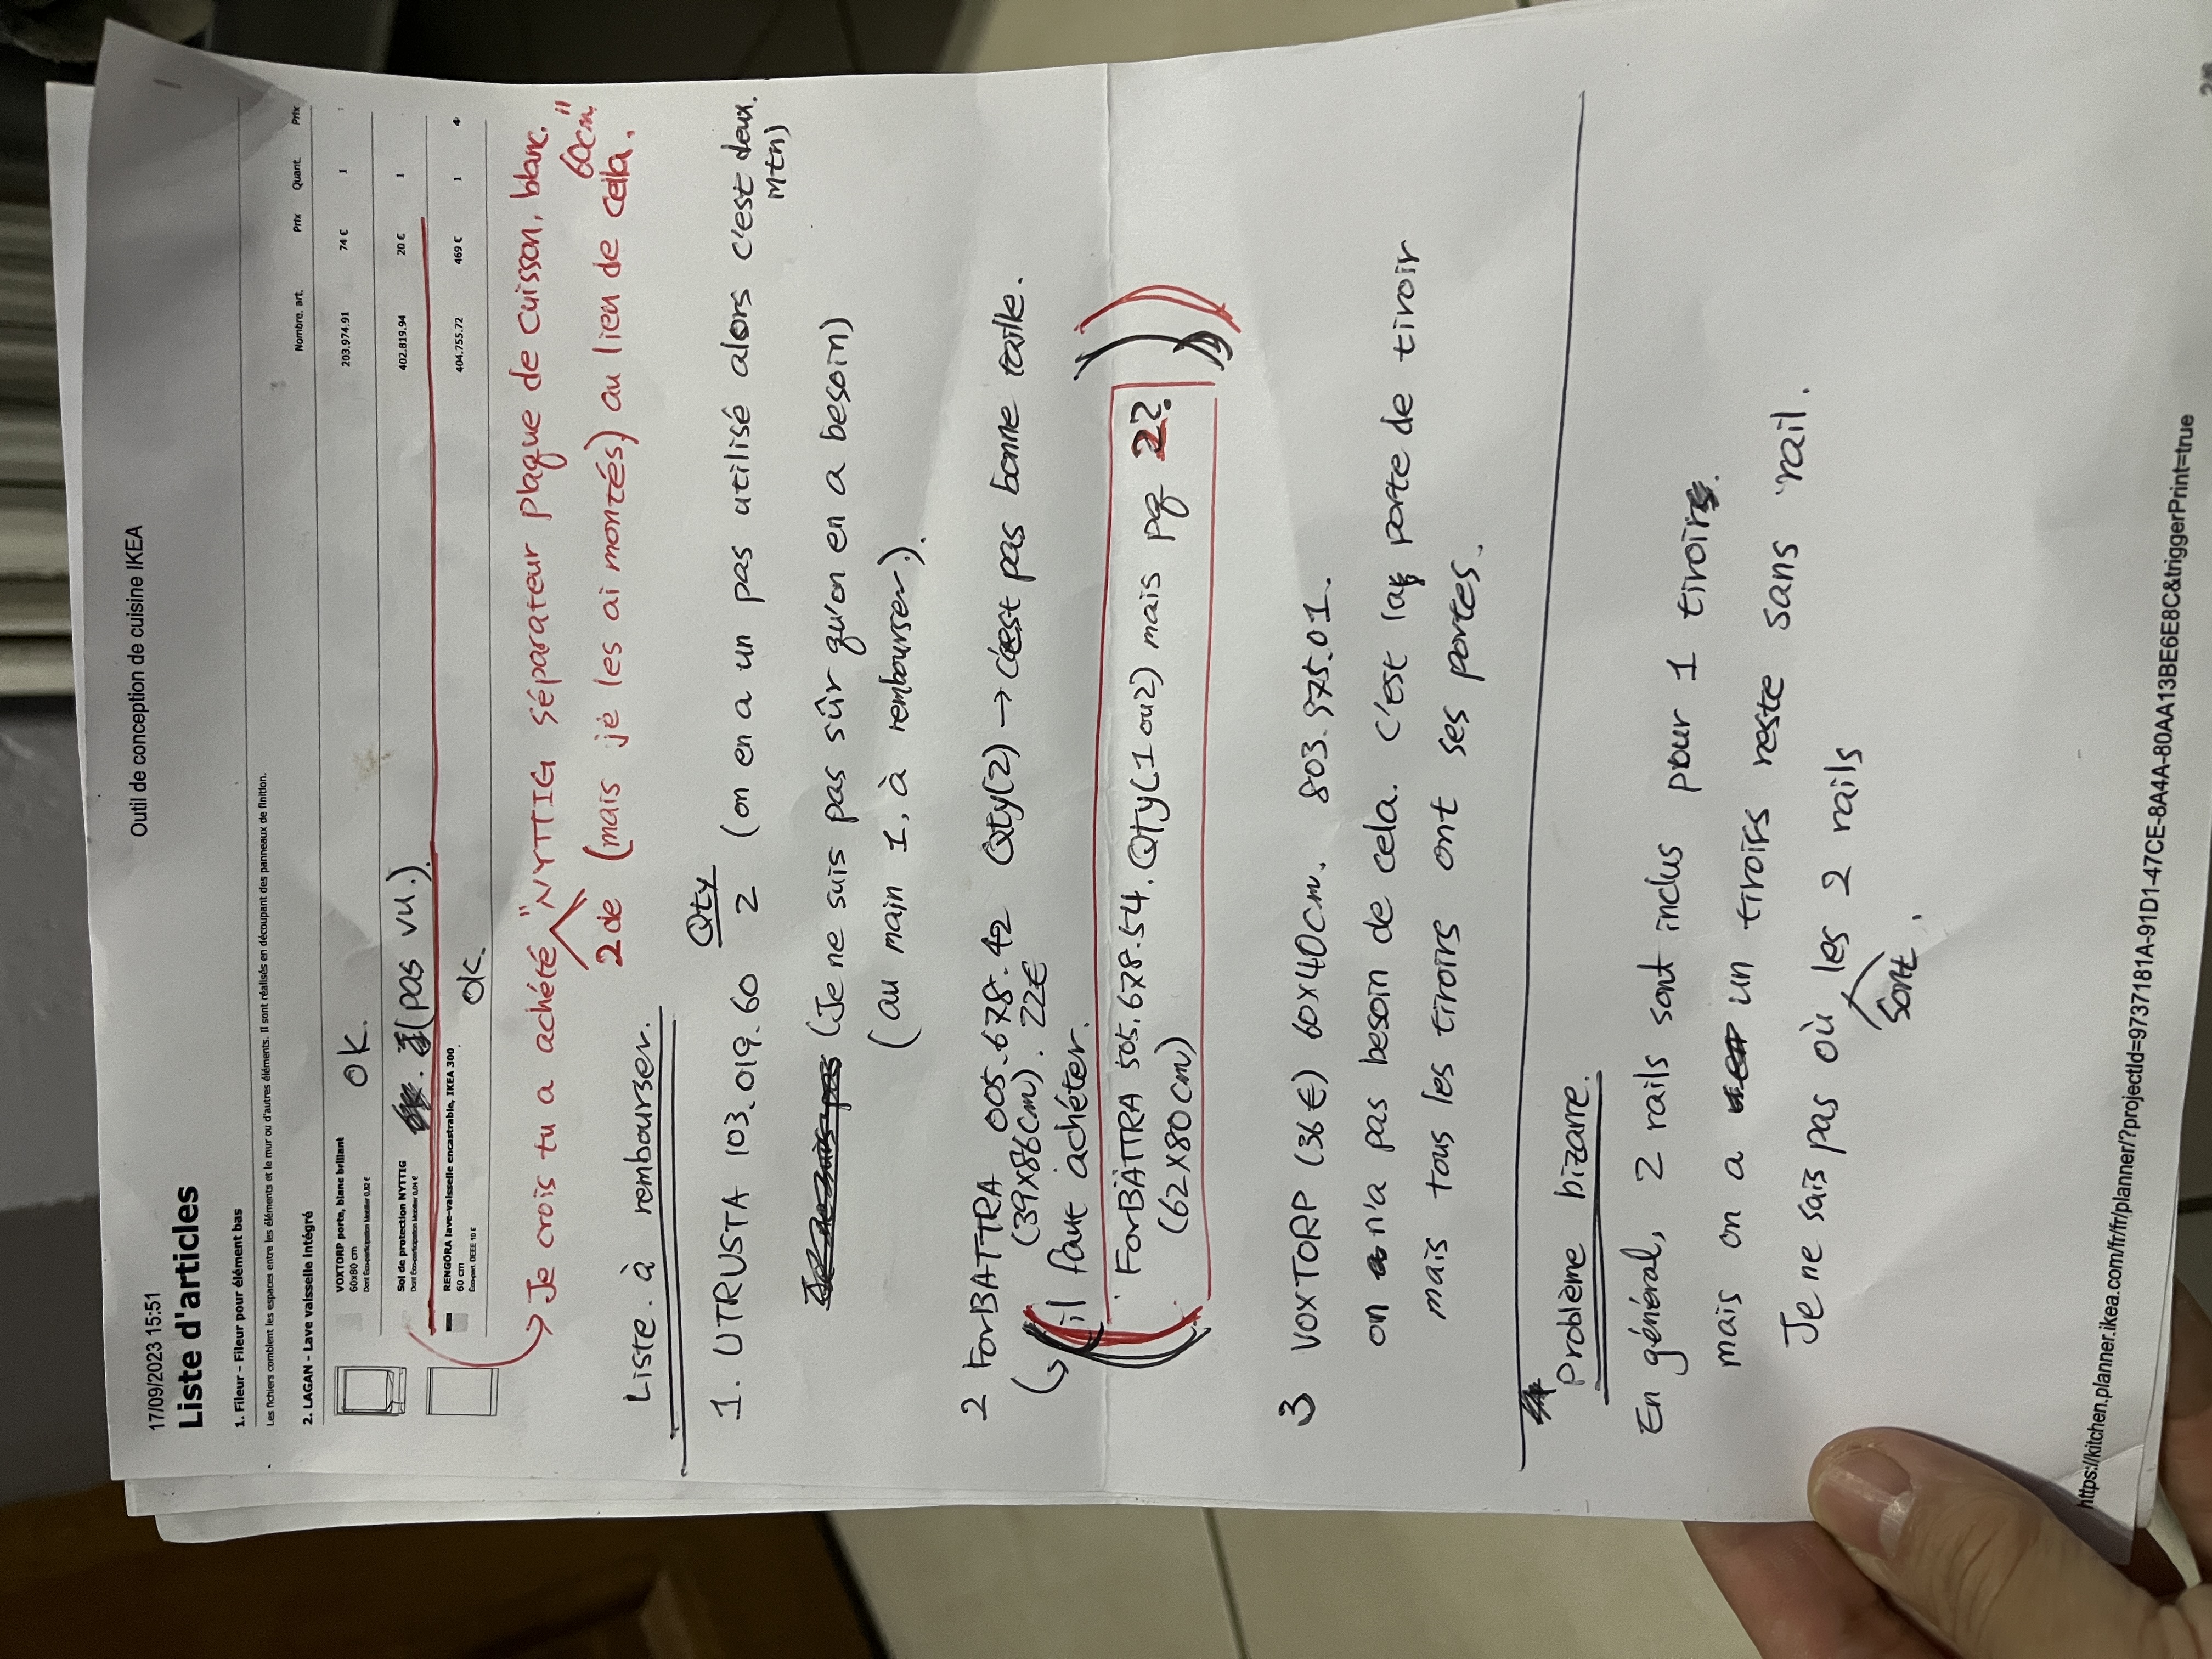 17/09/2023 15:51
Outil de conception de cuisine IKEA
Liste d'articles
1. Fileur - Fileur pour élément bas
Les fichiers comblent les espaces entre les éléments et le mur ou d'autres éléments. Il sont réalisés en découpant des panneaux de finition.
2. LAGAN - Lave vaisselle intégré
Nombre. art. Prix Quant. Prix
VOXTORP porte, blanc brillant
60x80 cm
Dont Éco-participation Mobilier 0,82 €
OK.
203.974.91 74 € 1
Sol de protection NYTTIG
Dont Éco-participation Mobilier 0,04 €
(pas vu.)
402.819.94 20 € 1
RENGÖRA lave-vaisselle encastrable, IKEA 300
60 cm
Éco-part. DEEE 10 €
ok.
404.755.72 469 € 1 4
Je crois tu a achété "NYTTIG séparateur plaque de cuisson, blanc.
60cm"
2 de (mais je les ai montés) au lieu de cella.
Liste. à rembourser.
Qty
1. UTRUSTA 103.019.60 2 (on en a un pas utilisé alors c'est deux.
mtn)
(Je ne suis pas sûr qu'on en a besoin)
(au main 1, à rembourser.).
2 ForBATTRA 005.678.42 Qty(2) → c'est pas bonne taille.
(39X86cm). 22€
il faut achéter.
ForBÄTTRA 505.678.54. Qty(1 ou2) mais pq 2?
(62X80cm)
3 VOXTORP (36€) 60X40cm. 803.975.01.
on n'a pas besoin de cela. C'est la porte de tiroir
mais tous les tiroirs ont ses portes.
Problème bizarre.
En général, 2 rails sont inclus pour 1 tiroir.
mais on a un tiroirs reste sans rail.
Je ne sais pas où les 2 rails
sont.
https://kitchen.planner.ikea.com/fr/fr/planner/?projectId=9737181A-91D1-47CE-8A4A-80AA13BE6E8C&triggerPrint=true